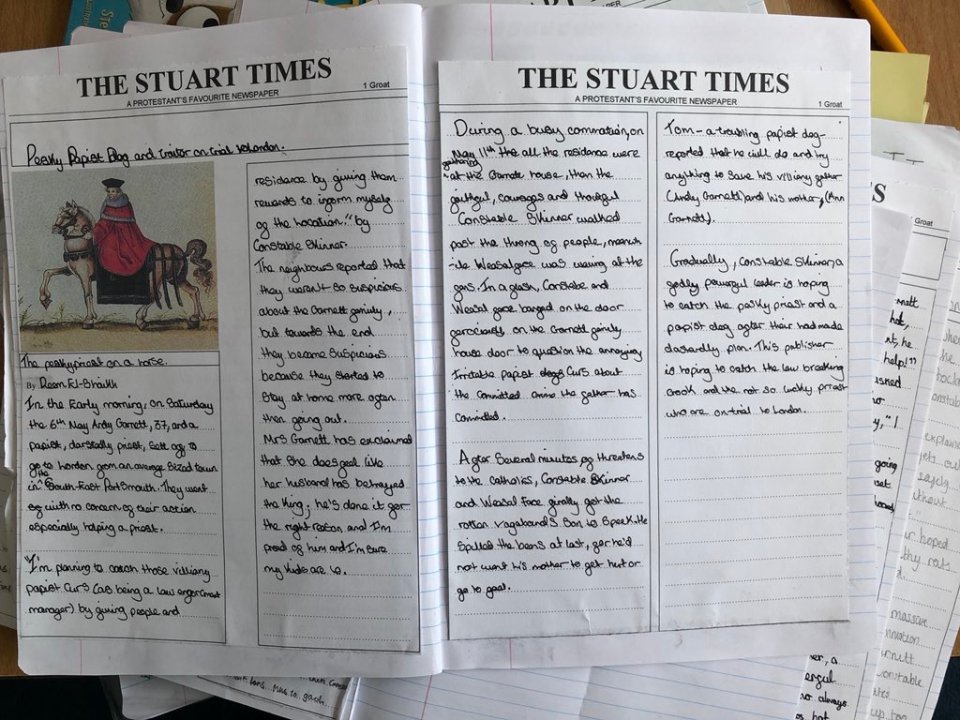 THE STUART TIMES
A PROTESTANT'S FAVOURITE NEWSPAPER
1 Groat
Pesky Papist Blog and traitor on trial to London.
The pesky priest on a horse.
By Reem El-Shaikh
In the Early morning, on Saturday
the 6th May Andy Garrett, 37, and a
papist, darstedly priest, sett off to
go to London from an average sized town
in the South-East Portsmouth. They went
off with no concern of their action
especially helping a priest.
"I'm planning to catch those villainy
papist Curs (as being a law enforcment
manager) by giving people and
residance by giving them
rewards to inform myself
of the location." by
Constable Skinner.
The neighbours reported that
they weren't so suspicious
about the Garnett family,
but towards the end
they became suspicious
because they started to
stay at home more often
then going out.
Mrs Garnett has exclaimed
that she does feel like
her husband has betrayed
the King; he's done it for
the right reason and I'm
proud of him and I'm sure
my kids are to.
THE STUART TIMES
A PROTESTANT'S FAVOURITE NEWSPAPER
1 Groat
During a busy commration, on
May 11th the all the residance were
gathering at the Garnete house, then the
faithful, courages and thoughful
Constable Skinner walked
past the throng of people, meanwh
-ile Weaselface was waving at the
fans. In a flash, Constable and
Weasel face banged on the door
ferociously on the Garnett family
house door to question the annoying
Irritable papist dogs Curs about
the committed crime the father has
committed.
After several minutes of threatens
to the Catholics, Constable Skinner
and Weasel Face finally got the
rotten vagabond's son to speek. He
spilled the beans at last, for he'd
not want his mother to get hurt or
go to gaol.
Tom - a troubling papist dog -
reported that he will do and try
anything to save his villiany father
(Andy Garnett) and his mother, (Ann
Garnett).
Gradually, Constable Skinner, a
godly powerful leader is hoping
to catch the pesky priest and a
papist dog after their had made
dastardly plan. This publisher
is hoping to catch the law breaking
crook and the not so lucky priest
who are on trial to London.
Groat
hat,
help!"
going
explaine
safely
hoped
massive
Constable